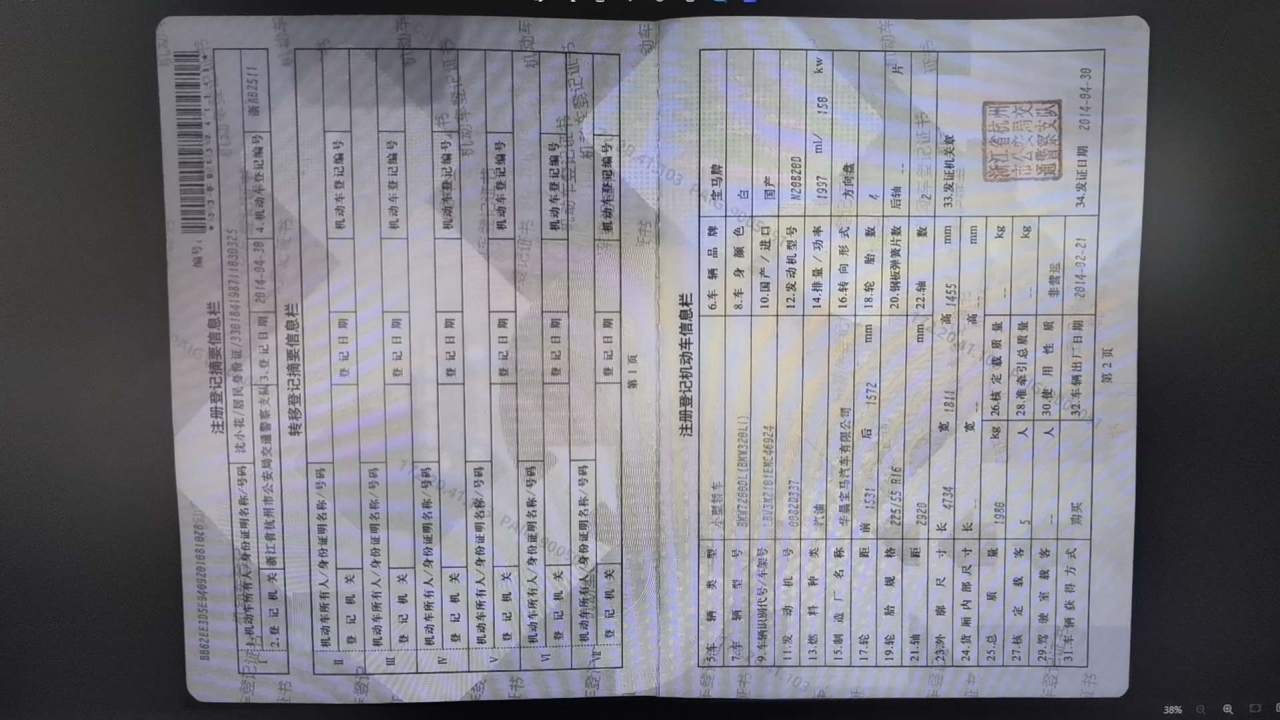 编号：
注册登记摘要信息栏
Ⅰ 1.机动车所有人/身份证明名称/号码 沈小花/居民身份证/330184198711030325
2.登记机关 浙江省杭州市公安局交通警察支队 3.登记日期 2014-04-30 4.机动车登记编号
转移登记摘要信息栏
Ⅱ 机动车所有人/身份证明名称/号码
登记机关 登记日期 机动车登记编号
Ⅲ 机动车所有人/身份证明名称/号码
登记机关 登记日期 机动车登记编号
Ⅳ 机动车所有人/身份证明名称/号码
登记机关 登记日期 机动车登记编号
Ⅴ 机动车所有人/身份证明名称/号码
登记机关 登记日期 机动车登记编号
Ⅵ 机动车所有人/身份证明名称/号码
登记机关 登记日期 机动车登记编号
Ⅶ 机动车所有人/身份证明名称/号码
登记机关 登记日期 机动车登记编号
第1页
注册登记机动车信息栏
5.车辆类型 小型轿车 6.车辆品牌 宝马牌
7.车辆型号 BMW7200DL(BMW320Li) 8.车身颜色 白
9.车辆识别代号/车架号 10.国产/进口 国产
11.发动机号 12.发动机型号 N20B20D
13.燃料种类 汽油 14.排量/功率 1997 ml/ 150 kw
15.制造厂名称 华晨宝马汽车有限公司 16.转向形式 方向盘
17.轮距 前 1531 后 1572 mm 18.轮胎数 4
19.轮胎规格 225/55 R16 20.钢板弹簧片数 后轴 -- 片
21.轴距 2920 mm 22.轴数 2
23.外廓尺寸 长 4734 宽 1811 高 1455 mm 33.发证机关章
24.货厢内部尺寸 长 -- 宽 -- 高 -- mm
25.总质量 1980 kg 26.核定载质量 -- kg
27.核定载客 5 人 28.准牵引总质量 -- kg
29.驾驶室载客 -- 人 30.使用性质 非营运
31.车辆获得方式 购买 32.车辆出厂日期 2014-02-21 34.发证日期 2014-04-30
浙江省杭州市公安局交通警察支队
第2页
38%